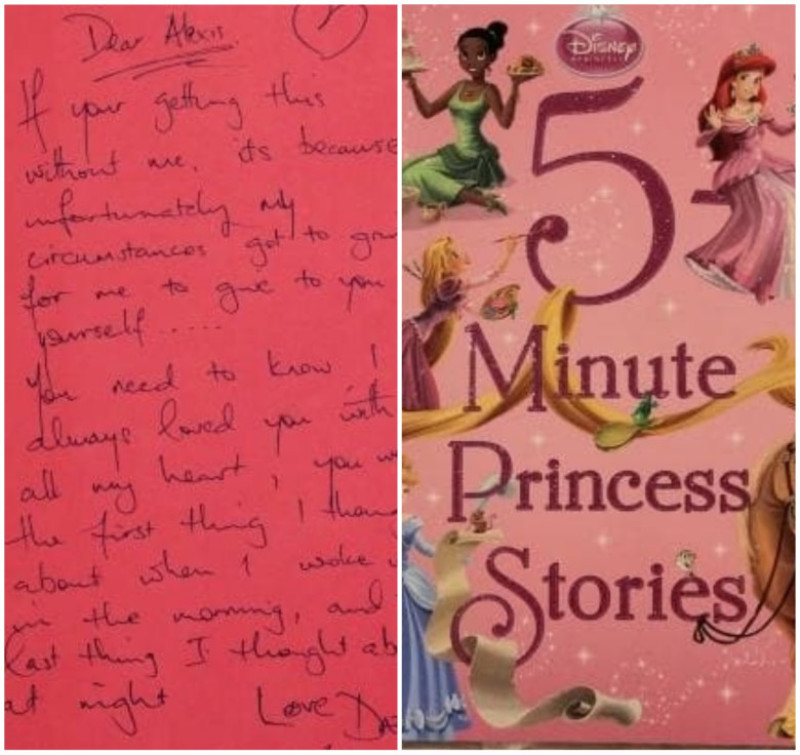 Dear Alexis
If your getting this
without me, its because
unfortunately my
circumstances got to gra
for me to give to you
yourself .....
You need to know I
always loved you with
all my heart, you w
the first thing I thou
about when I woke
in the morning, and
last thing I thought ab
at night Love Da
Disney
PRINCESS
5-
Minute
Princess
Stories